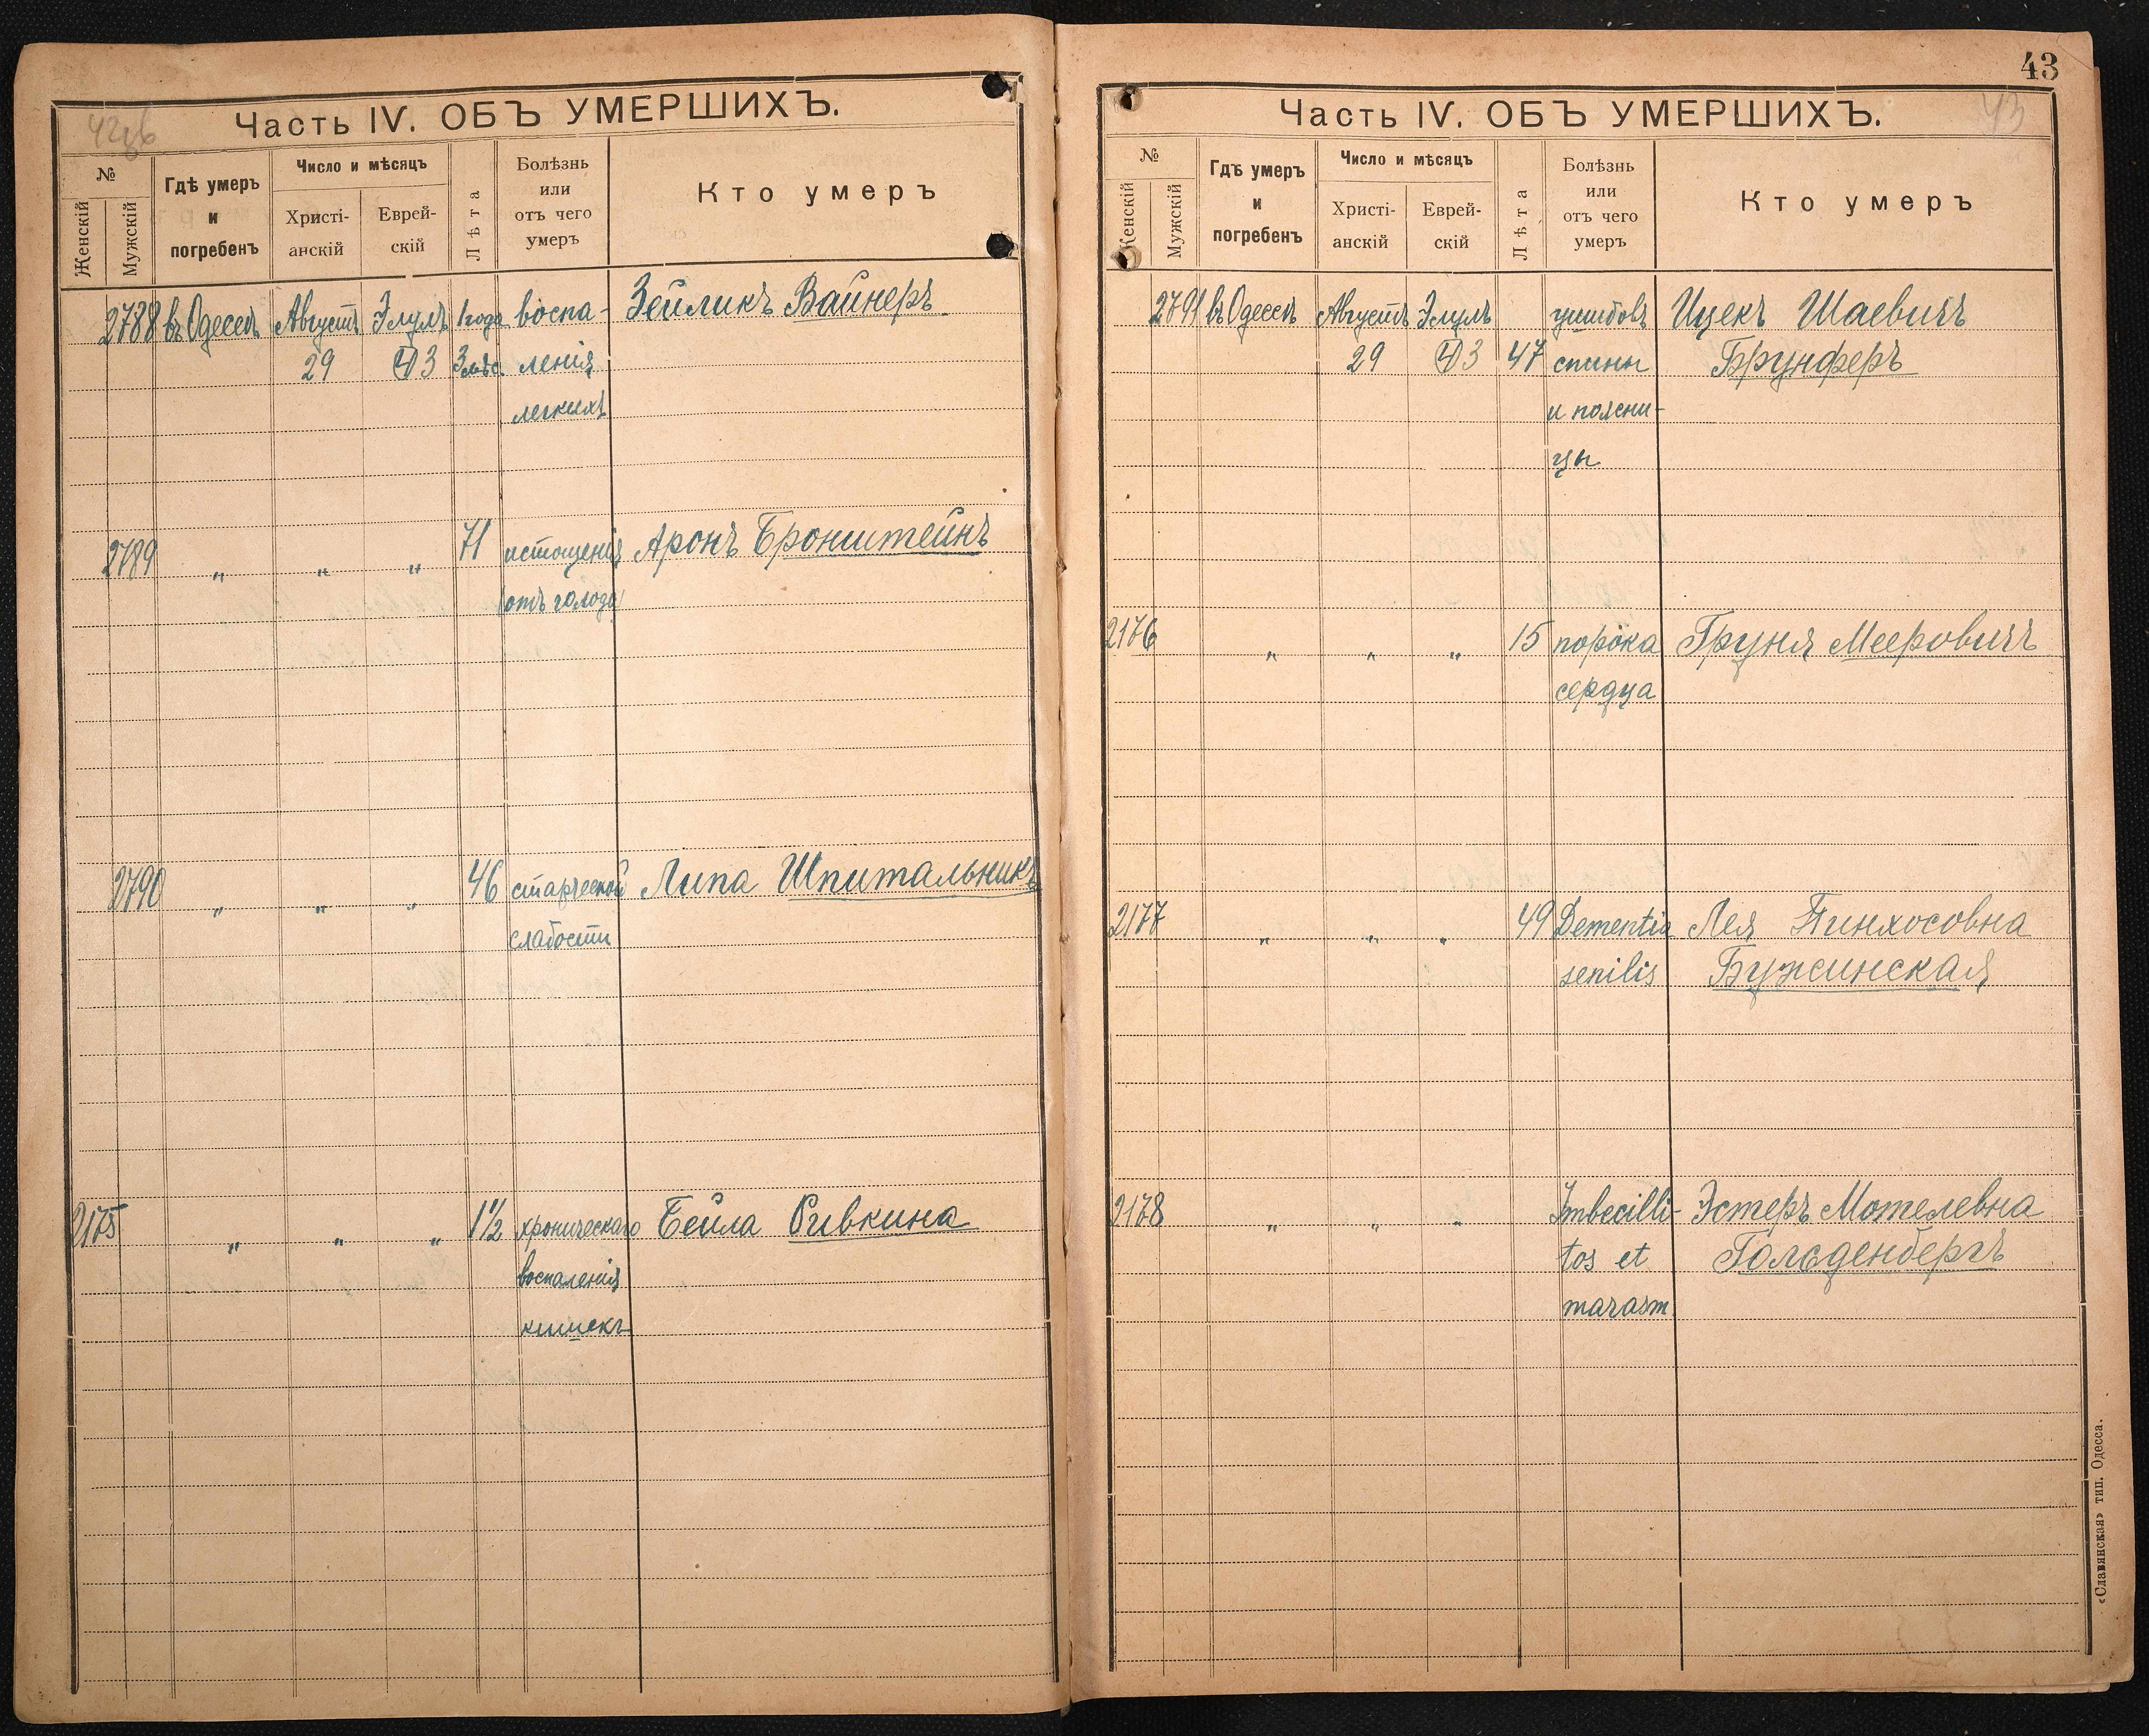 42об
Часть IV. ОБЪ УМЕРШИХЪ.
№
Женскій
Мужскій
Гдѣ умеръ
и
погребенъ
Число и мѣсяцъ
Христі-
анскій
Еврей-
скій
Лѣта
Болѣзнь
или
отъ чего
умеръ
Кто умеръ
2788 въ Одессѣ Августъ Элулъ 1 года воспа- Зейликъ Вайнеръ
29 3 3 мѣс. ленія
легкихъ
2789 „ „ „ 71 истощенія Аронъ Бронштейнъ
(отъ голода)
2790 „ „ „ 46 старческой Липа Шпитальникъ
слабости
2175 „ „ „ 1½ хроническаго Бейла Ривкина
воспаленія
кишекъ
43
43
Часть IV. ОБЪ УМЕРШИХЪ.
№
Женскій
Мужскій
Гдѣ умеръ
и
погребенъ
Число и мѣсяцъ
Христі-
анскій
Еврей-
скій
Лѣта
Болѣзнь
или
отъ чего
умеръ
Кто умеръ
2791 въ Одессѣ Августъ Элулъ ушибовъ Ицекъ Шаевичъ
29 3 47 спины Брунферъ
и поясни-
цы
2176 „ „ „ 15 порока Груня Мееровичъ
сердца
2177 „ „ „ 49 Dementia Лея Пинхосовна
senilis Бужинская
2178 „ „ „ Imbecilli- Эстеръ Мотелевна
tos et Гольденбергъ
marasm
«Славянская» тип. Одесса.